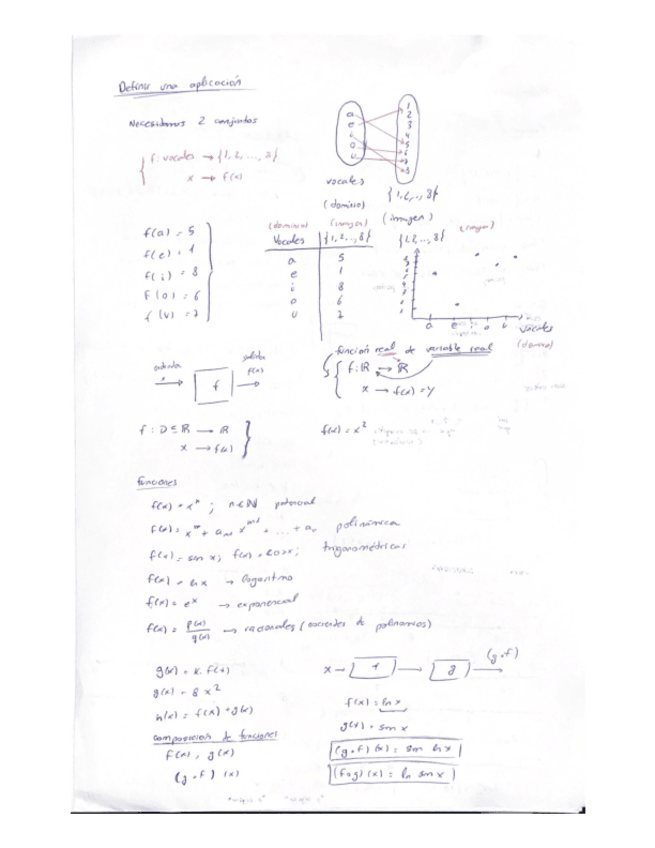 Definir una aplicación
Necesitamos 2 conjuntos
f: vocales → {1, 2, ..., 8}
x → f(x)
a
e
i
o
u
1
2
3
4
5
6
7
8
vocales
(dominio)
{1, 2, .., 8}
(imagen)
f(a) = 5
f(e) = 1
f(i) = 8
f(o) = 6
f(u) = 7
(dominio) (imagen)
Vocales {1, 2, .., 8}
a 5
e 1
i 8
o 6
u 7
{1, 2, .., 8} (imagen)
a e i o u
vocales
(dominio)
entrada
x
f
salida
f(x)
función real de variable real
f: ℝ → ℝ
x → f(x) = y
f: D ⊆ ℝ → ℝ
x → f(x)
f(x) = x²
funciones
f(x) = xⁿ ; n ∈ ℕ potencial
polinómica
f(x) = sin x; f(x) = cos x; trigonométricas
f(x) = ln x → logaritmo
f(x) = eˣ → exponencial
f(x) = p(x)/q(x) → racionales (cocientes de polinomios)
g(x) = k · f(x)
g(x) = 8 x²
h(x) = f(x) + g(x)
x → f → g → (g∘f)
f(x) = ln x
g(x) = sin x
composición de funciones
f(x), g(x)
(g∘f)(x)
(g∘f)(x) = sin ln x
(f∘g)(x) = ln sin x